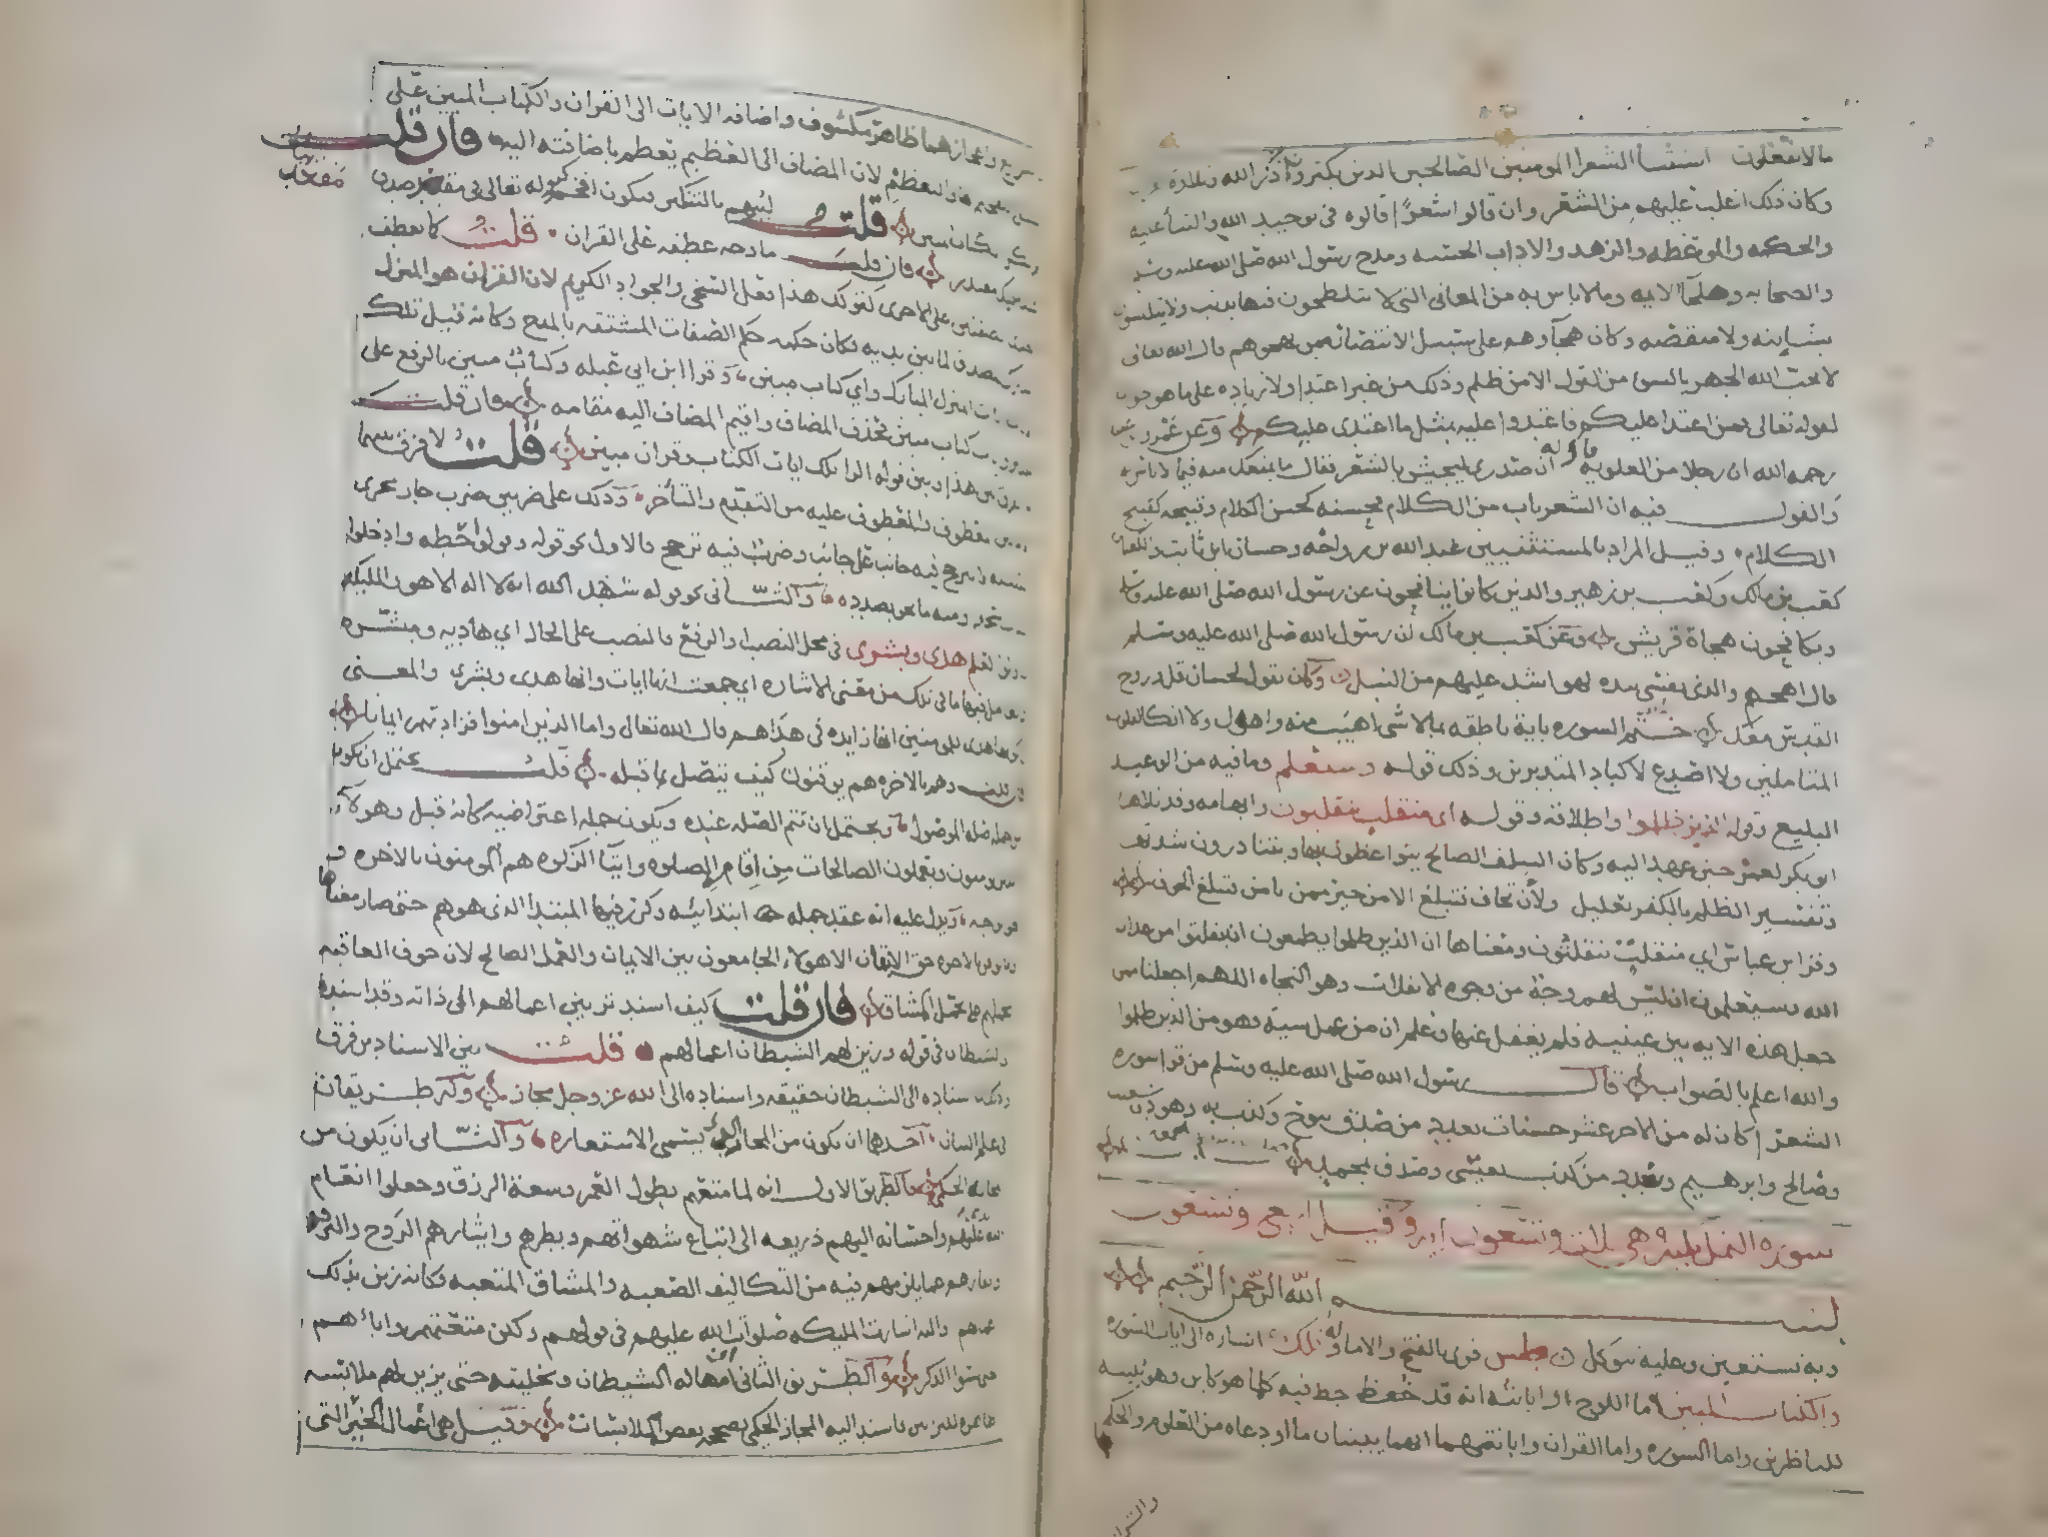 ما لا يفعلون استثنا الشعرا المومنين الصالحين الذين يكثرون ذكر الله وتلاوة
وكان ذلك اغلب عليهم من الشعر وان قالوا شعرا قالوه في توحيد الله والثنا عليه
والحكمه والموعظه والزهد والاداب الحسنه ومدح رسول الله صلى الله عليه وسلم
والصحابه وصلحا الامه وما لا باس به من المعاني التي لا يتلطخون فيها بذنب ولا يتلبسون
بشاينه ولا منقصه وكان هجآوهم على سبيل الانتصار ممن يهجوهم قال الله تعالى
لا يحب الله الجهر بالسو من القول الا من ظلم وذلك من غير اعتدا ولا زياده على ما هو جواب
لقوله تعالى فمن اعتدا عليكم فاعتدوا عليه بمثل ما اعتدى عليكم وعن عمرو بن
رحمه الله ان رجلا من العلويه قال له ان صدري ليجيش بالشعر فقال ما يمنعك منه فيما لا باس به
والقول فيه ان الشعر باب من الكلام فحسنه كحسن الكلام وقبيحه كقبيح
الكلام وقيل المراد بالمستثنيين عبد الله بن رواحه وحسان ابن ثابت والكعبان
كعب بن مالك وكعب بن زهير والذين كانوا ينافحون عن رسول الله صلى الله عليه وسلم
ويكافحون هجاة قريش وعن كعب بن مالك ان رسول الله صلى الله عليه وسلم
قال اهجهم والذي نفسي بيده لهو اشد عليهم من النبل وكان يقول لحسان قل وروح
القدس معك ختم السوره باية ناطقه بما لا شي اهيب منه واهول ولا انكا لقلوب
المتاملين ولا اصدع لاكباد المتدبرين وذلك قوله وسيعلم وما فيه من الوعيد
البليغ وقوله الذين ظلموا واطلاقه وقوله اى منقلب ينقلبون وابهامه وقد تلاها
ابو بكر لعمر حين عهد اليه وكان السلف الصالح يتواعظون بها ويتناذرون شدتها
وتفسير الظلم بالكفر تعليل ولأن تخاف فتبلغ الامن خير من ان تامن فتبلغ الخوف
وقرا ابن عباس اي منفلت ينفلتون ومعناها ان الذين ظلموا يطمعون ان ينفلتوا من عذاب
الله وسيعلمون ان ليس لهم وجه من وجوه الانفلات وهو النجاه اللهم اجعلنا ممن
جعل هذه الايه بين عينيه فلم يغفل عنها وعلم ان من عمل سيئة فهو من الذين ظلموا
والله اعلم بالصواب قال رسول الله صلى الله عليه وسلم من قرا سوره
الشعرا كان له من الاجر عشر حسنات بعدد من صدق بنوح وكذب به وهود وشعيب
وصالح وابرهيم وبعدد من كذب بعيسى وصدق بمحمد
سورة النمل مكيه وهي ثلاث وتسعون ايه وقيل اربع وتسعون
بسم الله الرحمن الرحيم
وبه نستعين وعليه نتوكل طس قرى بالفتح والاماله وتلك اشاره الى ايات السوره
والكتاب المبين اما اللوح وابانته انه قد خط فيه كلما هو كاين فهو يبينه
للناظرين واما السوره واما القران وابانتهما انهما يبينان ما اودعاه من العلوم والحكم
والشرا
وان اعجازهما ظاهر مكشوف واضافه الايات الى القران والكتاب المبين على
سبيل التفخيم لها والتعظيم لان المضاف الى العظيم يعظم باضافته اليه فان قلت
قلت ليبهم بالتنكير فيكون افخم له كقوله تعالى في مقعد صدق
عند مليك مقتدر فان قلت ما وجه عطفه على القران قلت كما يعطف
احدى الصفتين على الاخرى كقولك هذا فعل السخي والجواد الكريم لان القران هو المنزل
المبارك المصدق لما بين يديه فكان حكمه حكم الصفات المشتقه بالمدح وكانه قيل تلك
ايات المنزل المبارك واي كتاب مبين وقرا ابن ابي عبله وكتاب مبين بالرفع على
وايات كتاب مبين فحذف المضاف واقيم المضاف اليه مقامه فان قلت
ما الفرق بين هذا وبين قوله الر تلك ايات الكتاب وقران مبين قلت لا فرق بينهما
الا ما بين المعطوف والمعطوف عليه من التقدم والتأخر وذلك على ضربين ضرب جار مجرى
التثنيه لا يترجح فيه جانب على جانب وضرب فيه ترجح فالاول نحو قوله وقولوا حطه وادخلوا
الباب سجدا ومنه ما نحن بصدده والثاني نحو قوله شهد الله انه لا اله الا هو والمليكه
واولوا العلم هدى وبشرى في محل النصب او الرفع فالنصب على الحال اي هاديه ومبشره
والعامل فيها ما في تلك من معنى الاشاره اي جمعت انها ايات وانها هدى وبشرى والمعنى
في كونها هدى للمومنين انها زايده في هداهم قال الله تعالى واما الذين امنوا فزادتهم ايمانا
فان قلت وهم بالاخره هم يوقنون كيف يتصل بما قبله قلت يحتمل ان يكون
من جمله صله الموصول ويحتمل ان تتم الصله عنده ويكون جمله اعتراضيه كانه قيل وهولآ
الذين يومنون ويعملون الصالحات من اقام الصلوه وايتآ الزكوه هم الموقنون بالاخره و
هو الوجه ويدل عليه انه عقد جمله ابتدائيه وكرر فيها المبتدا الذي هو هم حتى صار معناها
وما يوقن بالاخره حق الايقان الا هولاء الجامعون بين الايمان والعمل الصالح لان خوف العاقبه
يحملهم على تحمل المشاق فان قلت كيف اسند تزيين اعمالهم الى ذاته وقد اسنده
الى الشيطان في قوله وزين لهم الشيطان اعمالهم قلت بين الاسنادين فرق
وذلك ان اسناده الى الشيطان حقيقه واسناده الى الله عز وجل مجاز وله طريقان
في علم البيان احدهما ان يكون من المجاز الذي يسمى الاستعاره والثاني ان يكون من
المجاز الحكمي فالطريق الاول انه لما متعهم بطول العمر وسعة الرزق وجعلوا انعام
الله عليهم واحسانه اليهم ذريعه الى اتباع شهواتهم وبطرهم وايثارهم الروح والترفه
ونفارهم عما يلزمهم فيه من التكاليف الصعبه والمشاق المتعبه فكانه زين بذلك
اعمالهم واليه اشارت المليكه صلوات الله عليهم في قولهم ولكن متعتهم واباءهم
حتى نسوا الذكر والطريق الثاني ان امهاله الشيطان وتخليته حتى يزين لهم ملابسه
ظاهره للتزيين فاسند اليه المجاز الحكمي يصححه بعض الملابسات وقيل هي اعمال الخير التي